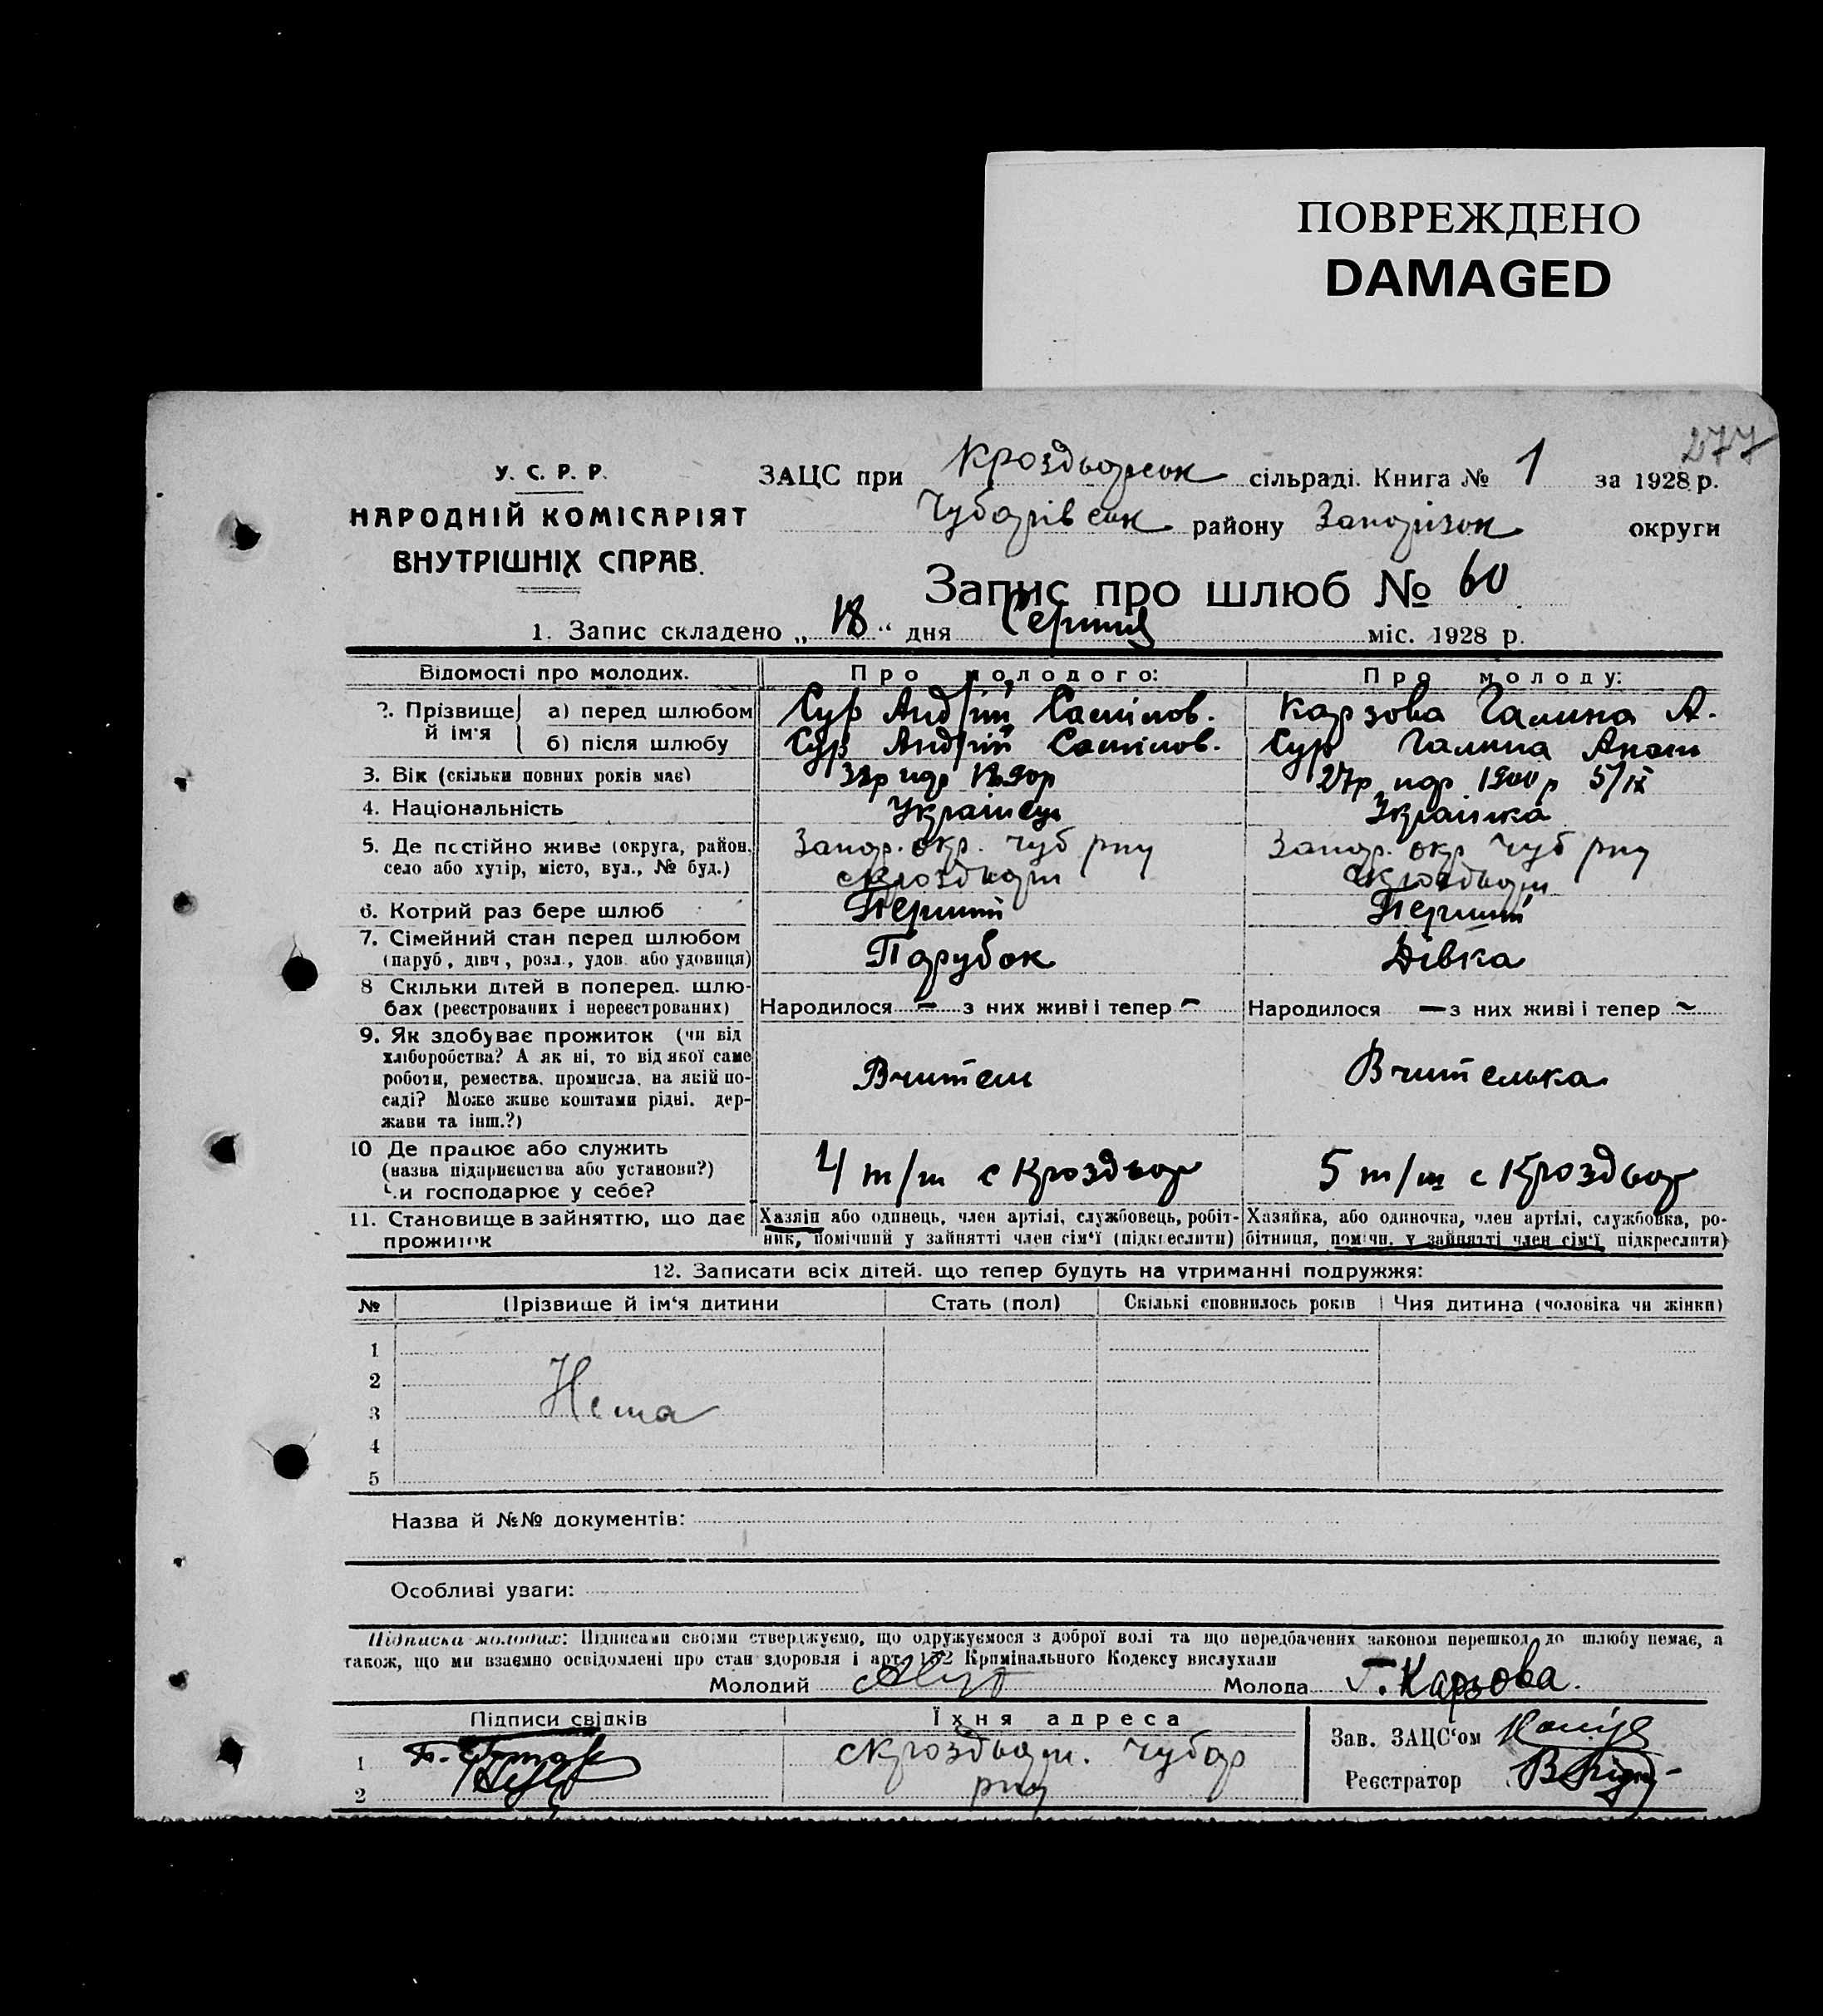 ПОВРЕЖДЕНО
DAMAGED
277
У. С. Р. Р.
НАРОДНІЙ КОМІСАРІЯТ
ВНУТРІШНІХ СПРАВ.
ЗАЦС при Кроздварськ сільраді. Книга № 1 за 1928 р.
Чубарівськ району Запорізьк округи
Запис про шлюб № 60
1. Запис складено „ 18 “ дня Серпня міс. 1928 р.
Відомості про молодих. Про молодого: Про молоду:
2. Прізвище й ім'я а) перед шлюбом Сур Андрій Самійлов. Карзова Галина А.
б) після шлюбу Сур Андрій Самійлов. Сур Галина
3. Вік (скільки повних років має) 27р нар 1900 р 5/IX
4. Національність Українець Українка
5. Де постійно живе (округа, район, Запор. окр. Чуб рну Запор. окр Чуб рну
село або хутір, місто, вул., № буд.) с Кроздвари с Кроздвари
6. Котрий раз бере шлюб Перший Перший
7. Сімейний стан перед шлюбом
(паруб., дівч., розл., удов. або удовиця) Парубок Дівка
8 Скільки дітей в поперед. шлю-
бах (реєстрованих і нереєстрованих) Народилося — з них живі і тепер — Народилося — з них живі і тепер ~
9. Як здобуває прожиток (чи від
хліборобства? А як ні, то від якої саме
роботи, ремества, промисла, на якій по- Вчитель Вчителька
саді? Може живе коштами рідні, дер-
жави та інш.?)
10 Де працює або служить
(назва підприємства або установи?) 4 т/ш с Кроздвор 5 т/ш с Кроздвор
Чи господарює у себе?
11. Становище в зайняттю, що дає Хазяїн або одинець, член артілі, службовець, робіт- Хазяйка, або одиночка, член артілі, службовка, ро-
прожиток ник, помічний у зайнятті член сім'ї (підкреслити) бітниця, помічн. у зайнятті член сім'ї підкреслити)
12. Записати всіх дітей, що тепер будуть на утриманні подружжя:
№ Прізвище й ім'я дитини Стать (пол) Скількі сповнилось років Чия дитина (чоловіка чи жінки)
1
2
3 Нема
4
5
Назва й №№ документів:
Особливі уваги:
Підписка молодих: Підписами своїми стверджуємо, що одружуємося з доброї волі та що передбачених законом перешкод до шлюбу немає, а
також, що ми взаємно освідомлені про стан здоров'я і арт. 152 Кримінального Кодексу вислухали
Молодий Молода Г. Карзова.
Підписи свідків Їхня адреса
1 с Кроздвари. Чубар
2 рну
Зав. ЗАЦС'ом
Реєстратор